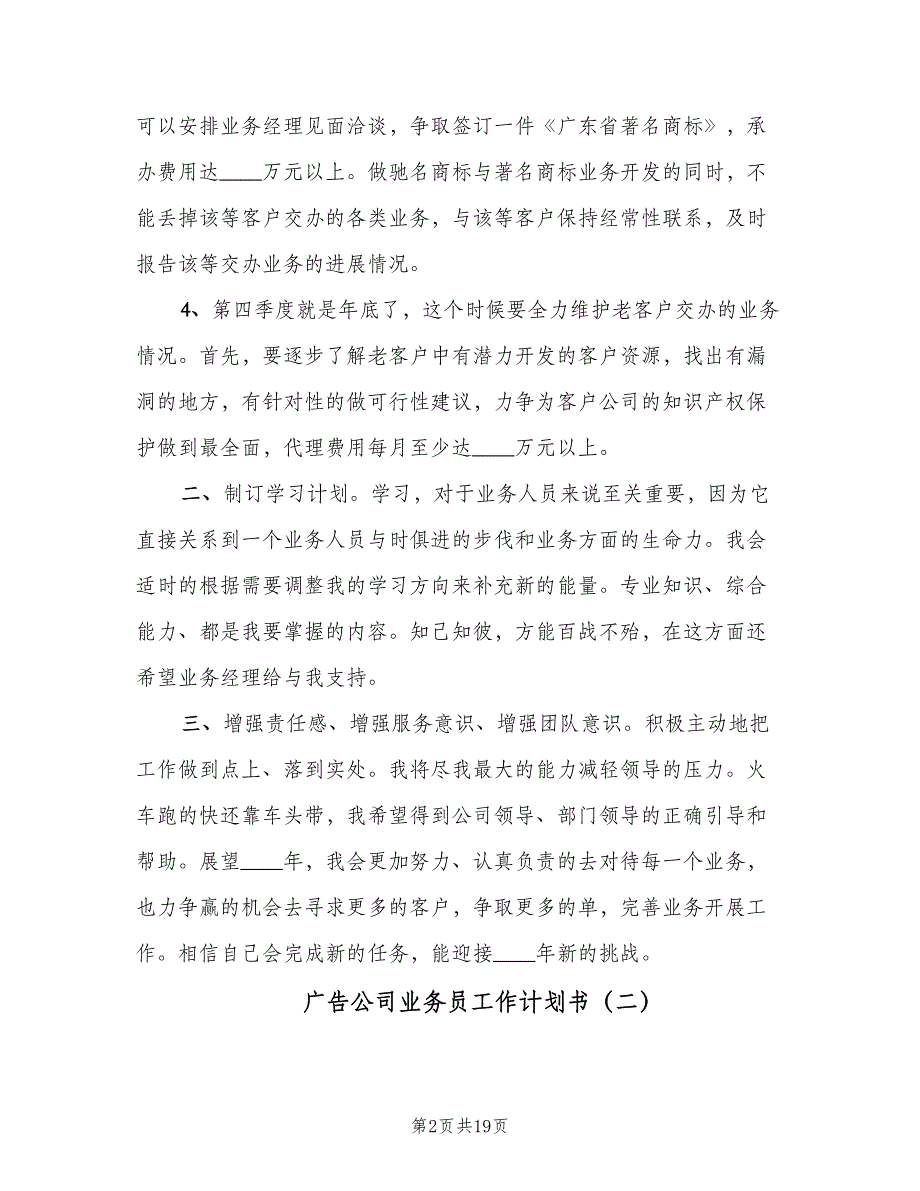 可以安排业务经理见面洽谈，争取签订一件《广东省著名商标》，承
办费用达____万元以上。做驰名商标与著名商标业务开发的同时，不
能丢掉该等客户交办的各类业务，与该等客户保持经常性联系，及时
报告该等交办业务的进展情况。
4、第四季度就是年底了，这个时候要全力维护老客户交办的业务
情况。首先，要逐步了解老客户中有潜力开发的客户资源，找出有漏
洞的地方，有针对性的做可行性建议，力争为客户公司的知识产权保
护做到最全面，代理费用每月至少达____万元以上。
二、制订学习计划。学习，对于业务人员来说至关重要，因为它
直接关系到一个业务人员与时俱进的步伐和业务方面的生命力。我会
适时的根据需要调整我的学习方向来补充新的能量。专业知识、综合
能力、都是我要掌握的内容。知己知彼，方能百战不殆，在这方面还
希望业务经理给与我支持。
三、增强责任感、增强服务意识、增强团队意识。积极主动地把
工作做到点上、落到实处。我将尽我最大的能力减轻领导的压力。火
车跑的快还靠车头带，我希望得到公司领导、部门领导的正确引导和
帮助。展望____年，我会更加努力、认真负责的去对待每一个业务，
也力争赢的机会去寻求更多的客户，争取更多的单，完善业务开展工
作。相信自己会完成新的任务，能迎接____年新的挑战。
广告公司业务员工作计划书（二）
第2页共19页